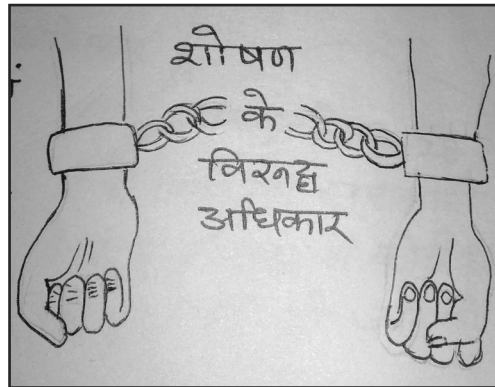 शोषण
के
विरूद्ध
अधिकार